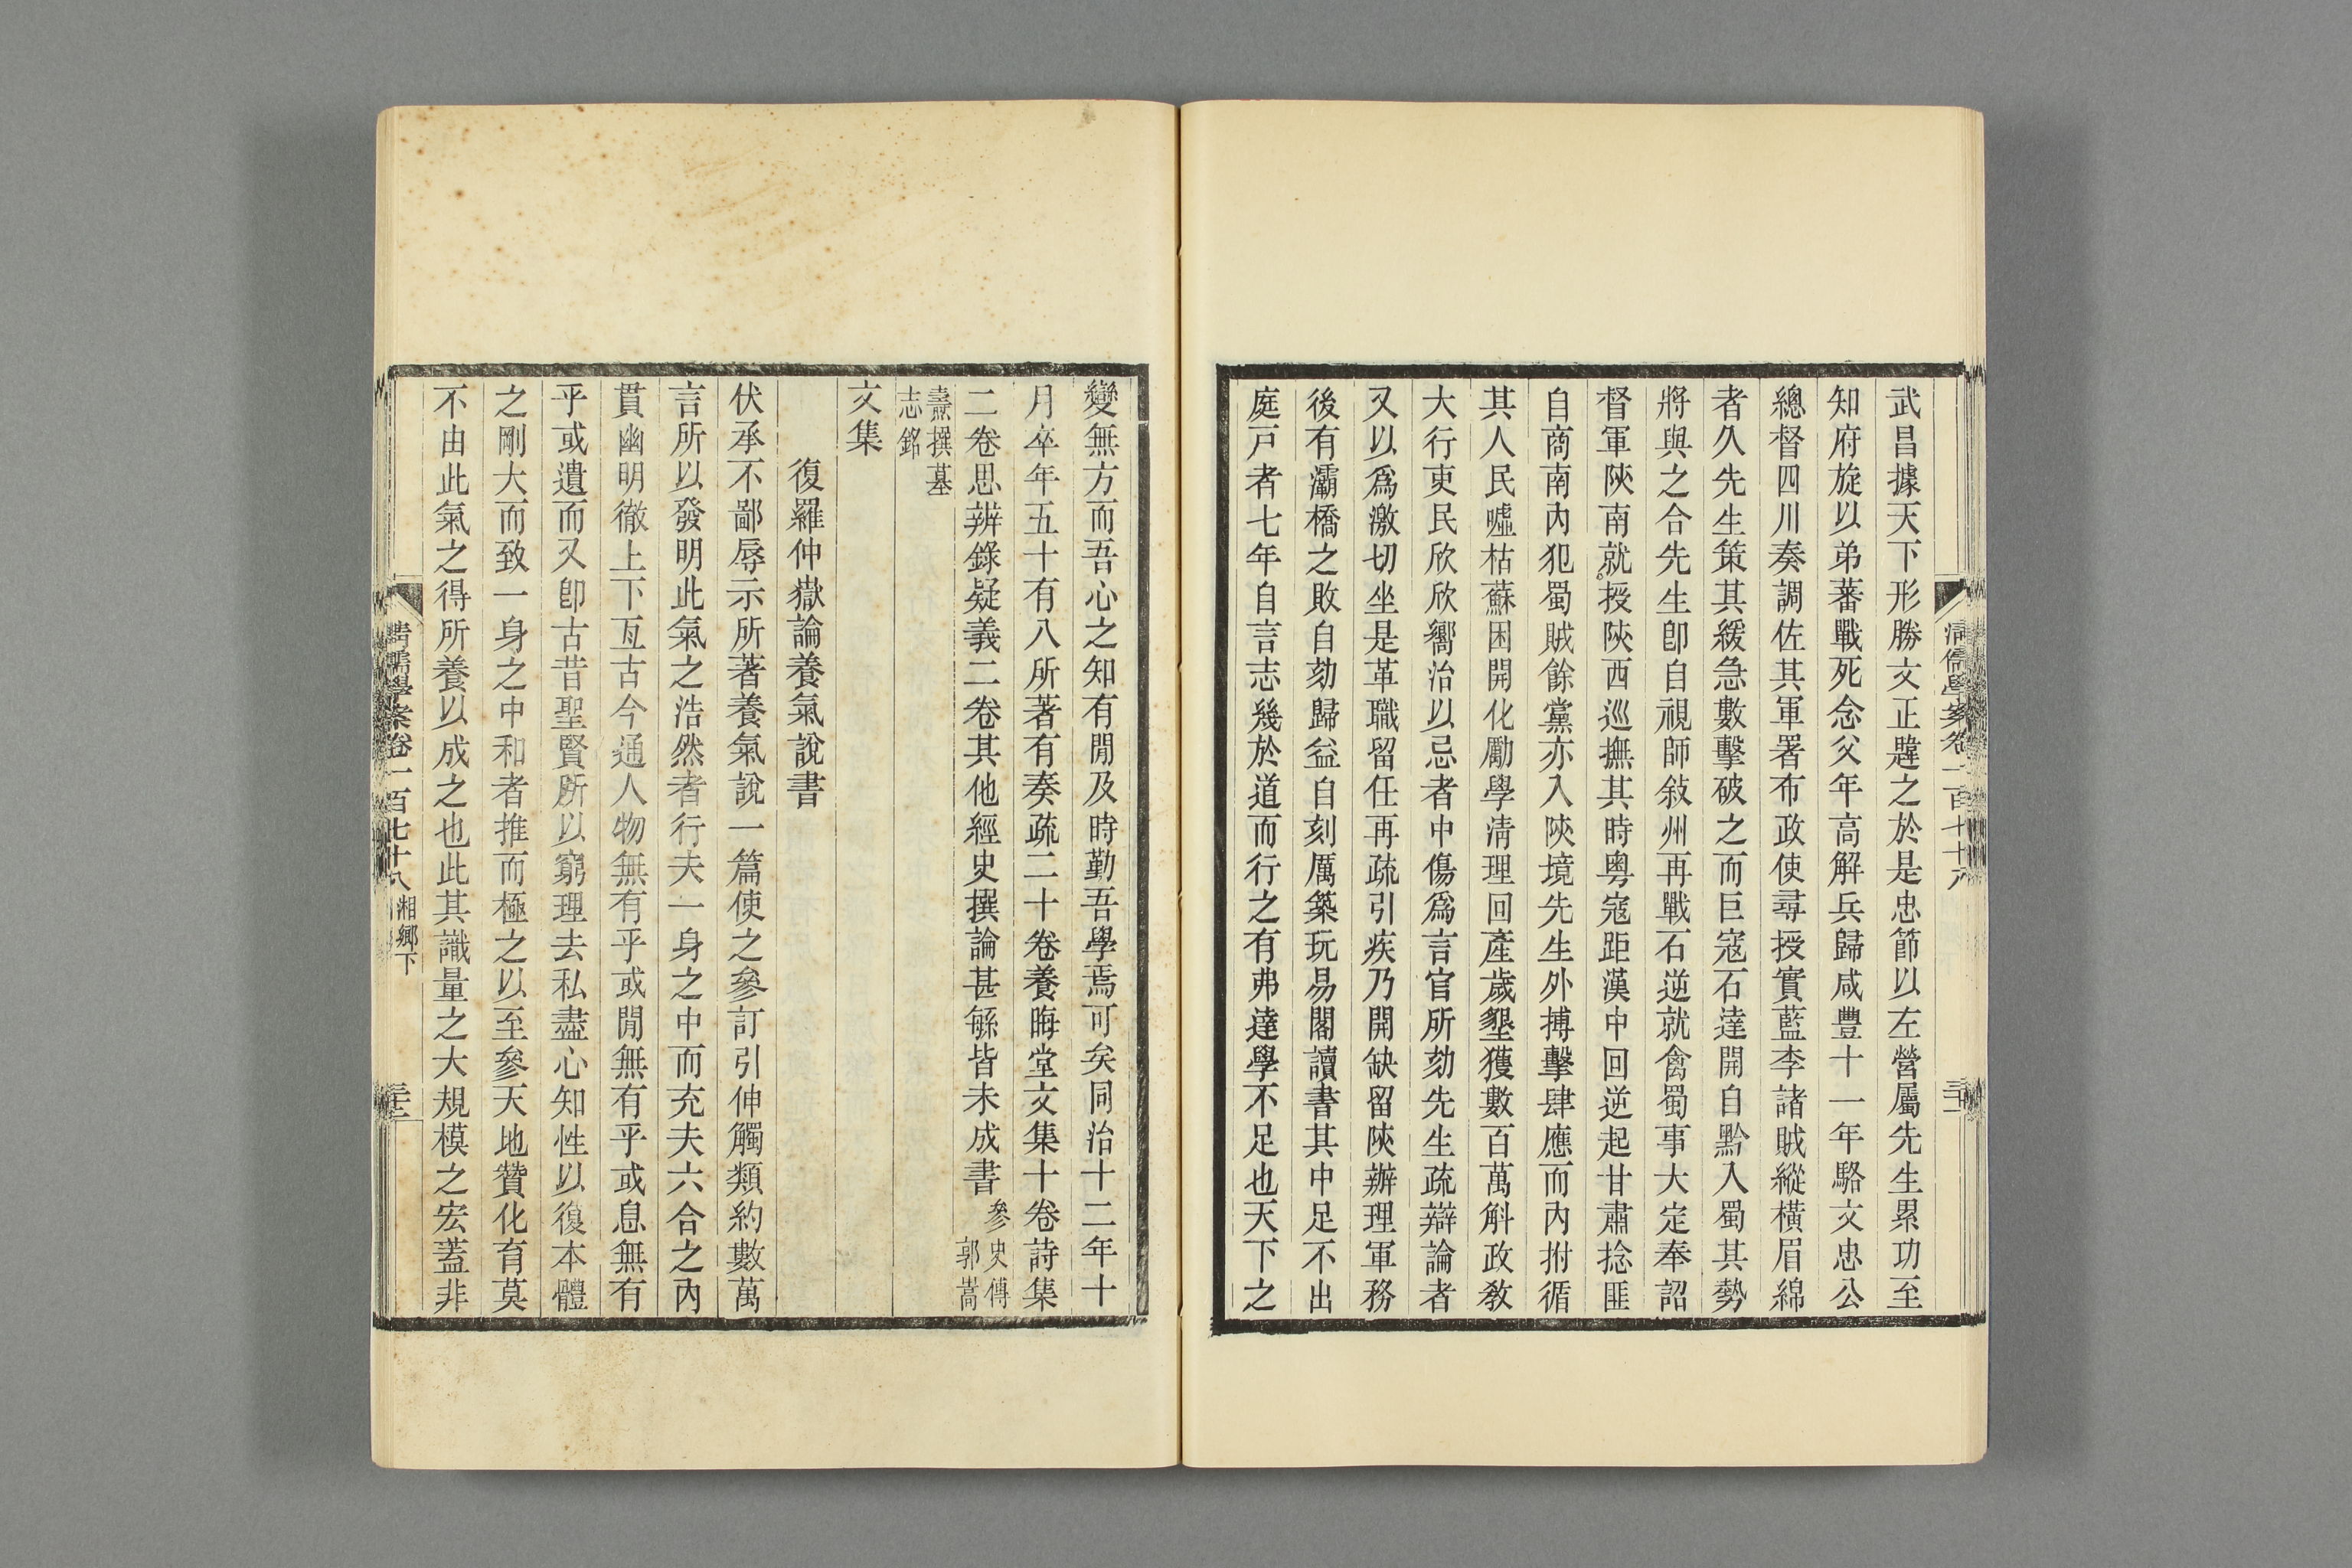 武昌據天下形勝文正韙之於是忠節以左營屬先生累功至
知府旋以弟蕃戰死念父年高解兵歸咸豐十一年駱文忠公
總督四川奏調佐其軍署布政使尋授實藍李諸賊縱橫眉綿
者久先生策其緩急數擊破之而巨寇石達開自黔入蜀其勢
將與之合先生卽自視師敍州再戰石逆就禽蜀事大定奉詔
督軍陝南就授陝西巡撫其時粵寇距漢中回逆起甘肅捻匪
自商南內犯蜀賊餘黨亦入陝境先生外搏擊肆應而內拊循
其人民噓枯蘇困開化勵學淸理回產歲墾獲數百萬斛政敎
大行吏民欣欣嚮治以忌者中傷爲言官所劾先生疏辯論者
又以爲激切坐是革職留任再疏引疾乃開缺留陝辦理軍務
後有灞橋之敗自劾歸益自刻厲築玩易閣讀書其中足不出
庭戸者七年自言志幾於道而行之有弗達學不足也天下之
清儒學案卷一百七十八
變無方而吾心之知有閒及時勤吾學焉可矣同治十二年十
月卒年五十有八所著有奏疏二十卷養晦堂文集十卷詩集
二卷思辨錄疑義二卷其他經史撰論甚緐皆未成書 參史傳 郭嵩
燾撰墓志銘
文集
復羅仲嶽論養氣說書
伏承不鄙辱示所著養氣說一篇使之參訂引伸觸類約數萬
言所以發明此氣之浩然者行夫一身之中而充夫六合之內
貫幽明徹上下亙古今通人物無有乎或閒無有乎或息無有
乎或遺而又卽古昔聖賢所以窮理去私盡心知性以復本體
之剛大而致一身之中和者推而極之以至參天地贊化育莫
不由此氣之得所養以成之也此其識量之大規模之宏蓋非
清儒學案卷一百七十八 湘鄉下